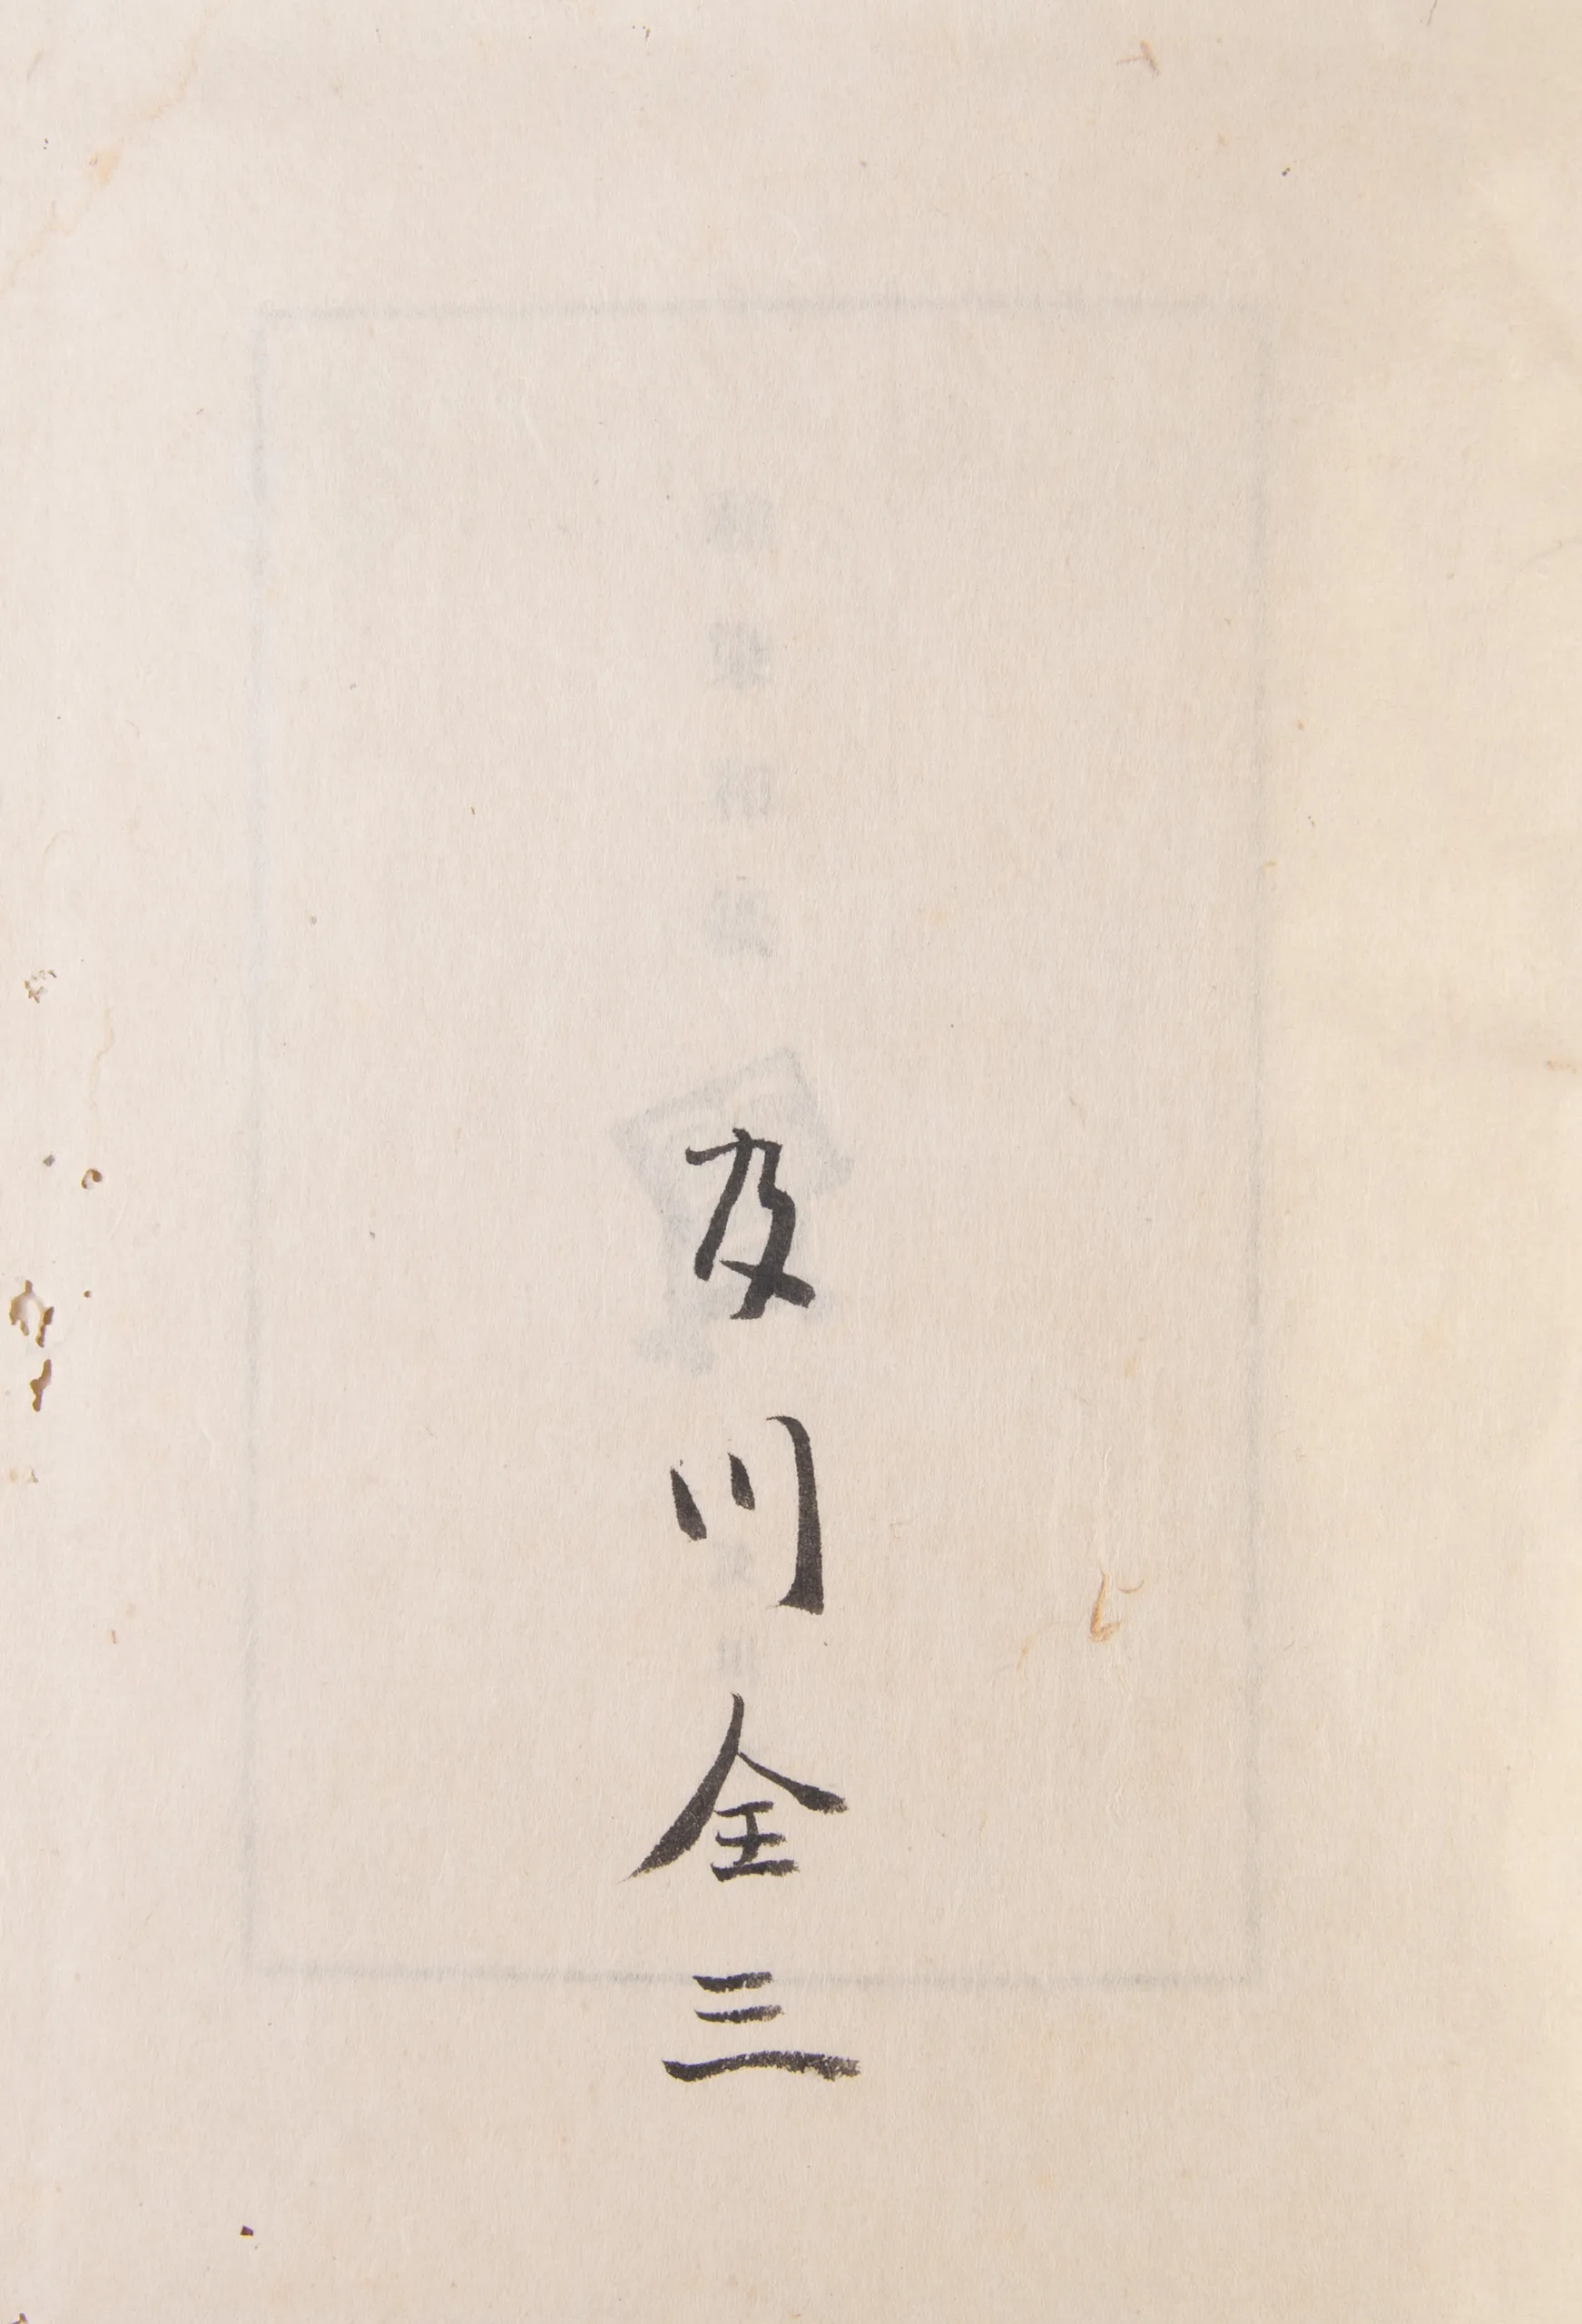 及川全三